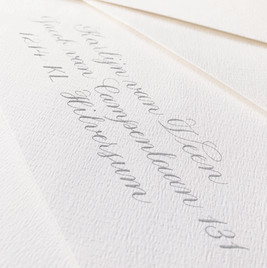 Karlijn van Veen
Guus van Campenlaan 131
1214 KL Hilversum